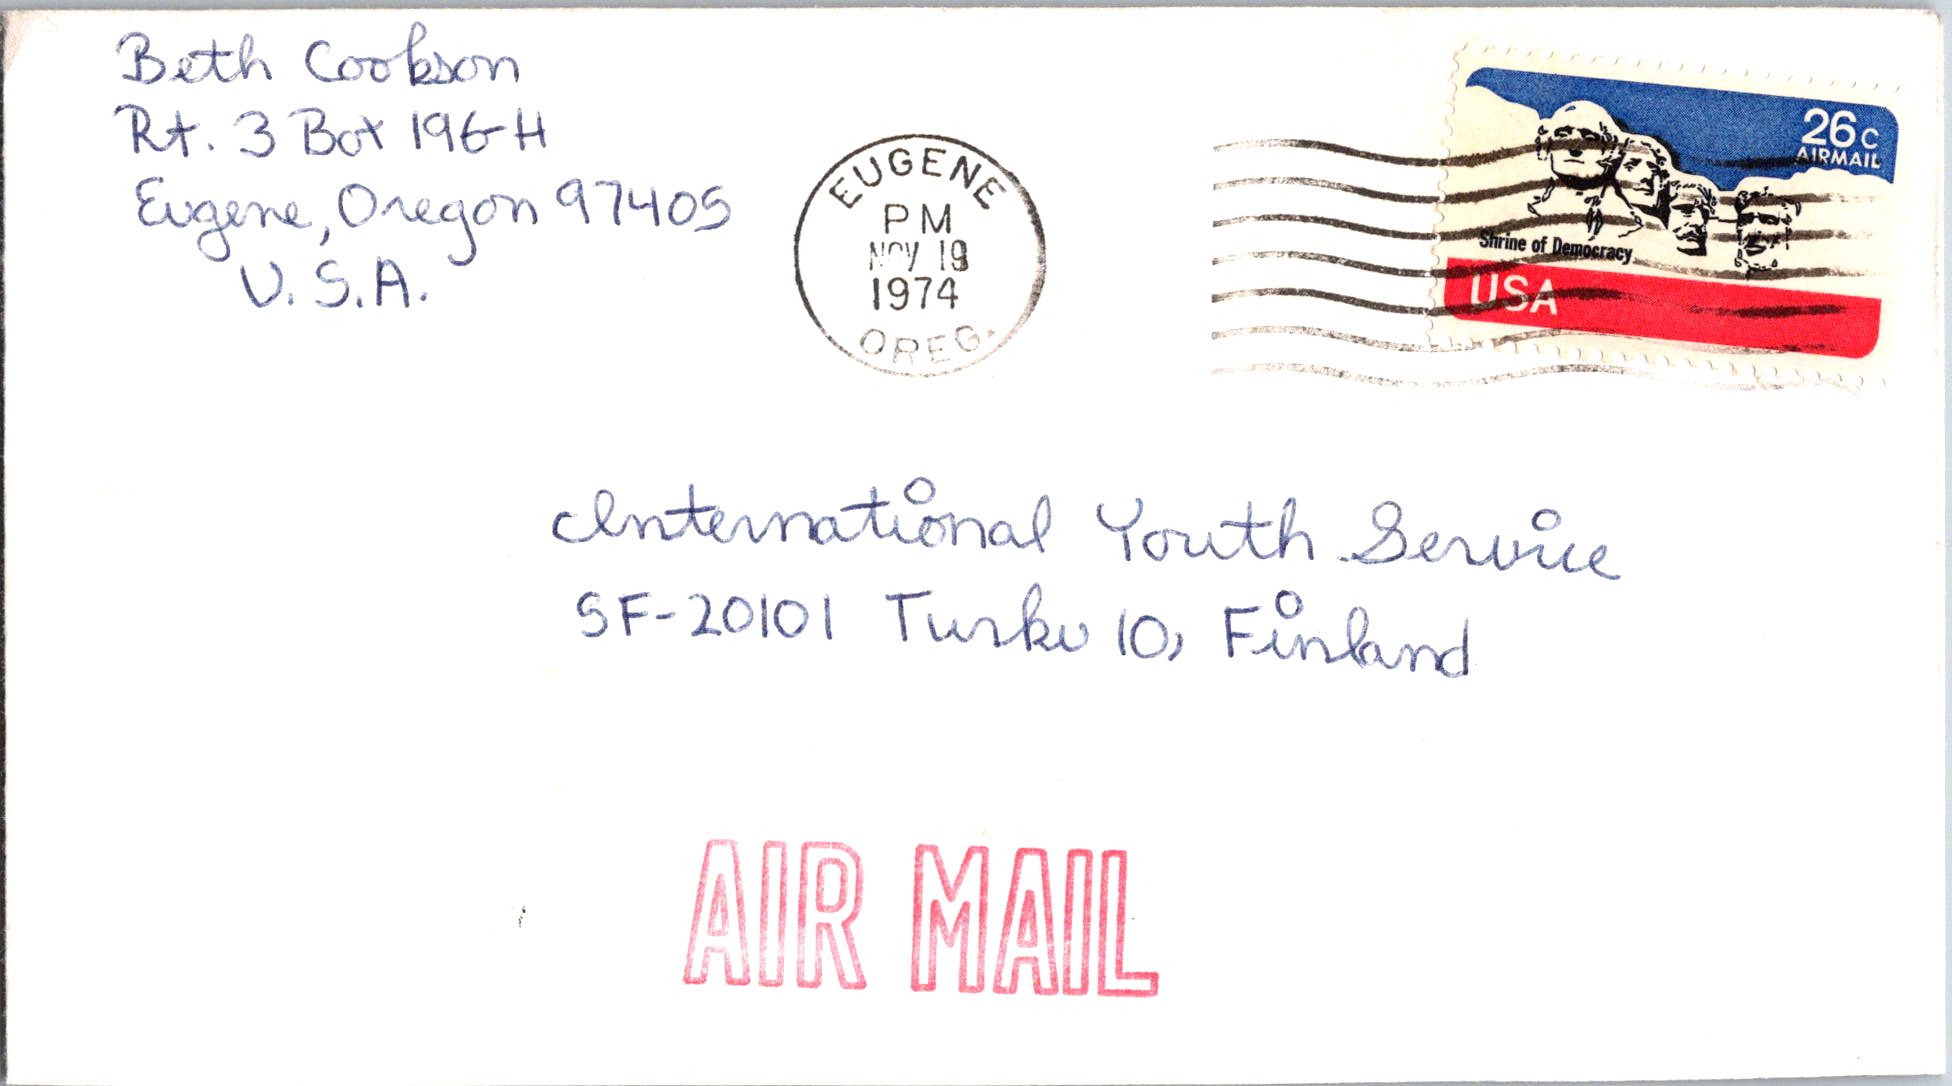 Beth Cookson
Rt. 3 Box 196-H
Eugene, Oregon 97405
U.S.A.
EUGENE
PM
NOV 19
1974
OREG.
26c
AIRMAIL
Shrine of Democracy
USA
International Youth Service
SF-20101 Turku 10, Finland
AIR MAIL